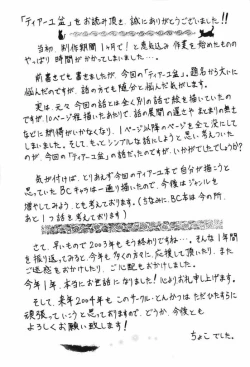 「ティアーユ盆」をお読み頂き、誠にありがとうございました!!
当初、制作期間1ヶ月で!と意気込み作業を始めたものの
やっぱり時間がかかってしまいました…。
前書きでも書きましたが、今回の「ティアーユ盆」、題名から大いに
悩んだのですが、話の方でも随分と悩んだ気がします。
実は、元々今回の話とは全く別の話で絵を描いていたの
ですが、10ページ程描いたあたりで、話の展開の遅さやまとまりの無さ
などに納得がいかなくなり、1ページ以降のページを全て没にして
しまいました。そして、もっとシンプルな話にしようと思い、考えついた
のが、今回の「ティアーユ盆」の話だったのですが、いかがでしたでしょうか?
気が付けば、とりあえず今回のティアーユ本で自分が描こうと
思っていたBCキャラは一通り描いたので、今後はジャンルを
増やしてみよう、とも考えております。(ちなみに、BC本は今の所、
あと1つ話を考えております)
さて、早いもので2003年ももう終わりですね…。そんな1年間
を振り返ってみると、今年も多くの方々に、応援して頂いたり、また
ご迷惑をおかけしたり、ご心配をおかけしました。
今年1年、本当にお世話になりました!心よりお礼申し上げます。
そして、来年2004年もこのサークル・とんかつはただひたすらに
頑張っていこうと思っておりますので、どうか、今後とも
よろしくお願い致します!
ちょこでした。